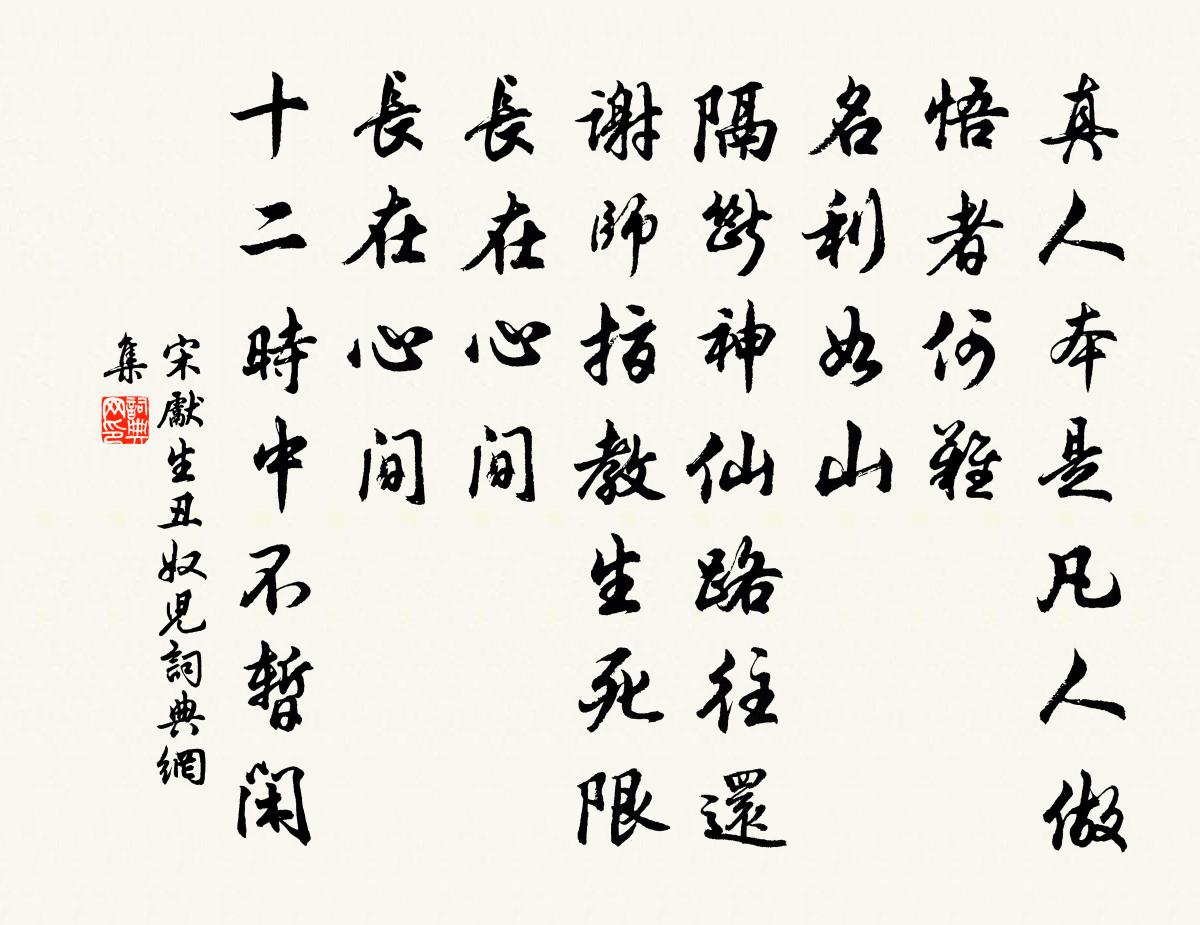 真人本是凡人做
悟者何難
名利如山
隔斷神仙路往還
謝師指教生死限
長在心間
長在心間
十二時中不暫閑
宋獻生丑奴兒詞典網
集
詞典
网印